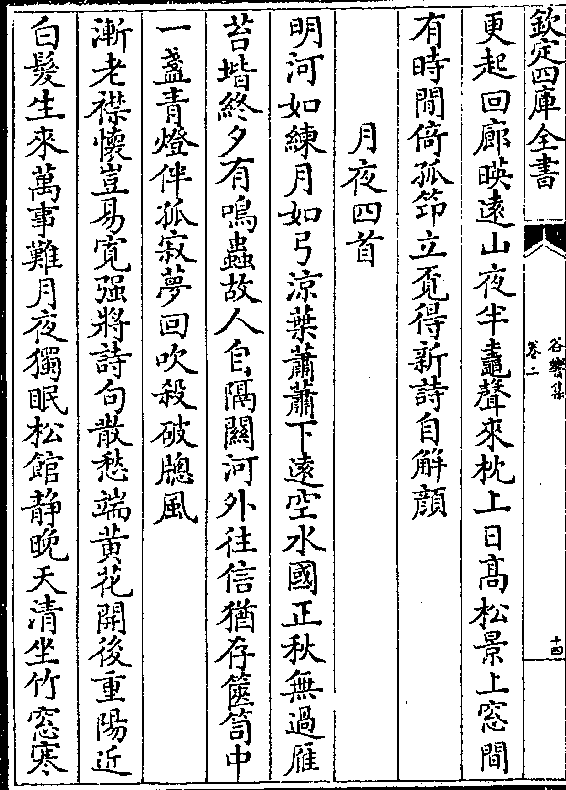 欽定四庫全書
谷響集
卷二
十四
更起回廊暎遠山夜半龜聲來枕上日髙松景上窓間
有時閒倚孤笻立覔得新詩自解顔
月夜四首
明河如練月如弓涼葉蕭蕭下遠空水國正秋無過雁
苔堦終夕有鳴蟲故人自隔關河外往信猶存篋笥中
一盞青燈伴孤寂夢回吹殺破牕風
漸老襟懷豈易寛强將詩句散愁端黄花開後重陽近
白髮生來萬事難月夜獨眠松館靜晚天清坐竹窓寒